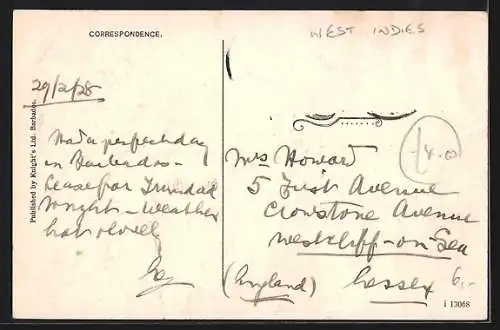 CORRESPONDENCE.
WEST INDIES
Published by Knight's Ltd. Barbados.
29/2/28
Had a perfect day
in Barbados -
Leave for Trinidad
tonight - weather
hot
Mrs Howard
5 First Avenue
Crowstone Avenue
Westcliff-on-Sea
(England) Essex
14.00
6.-
i 13068